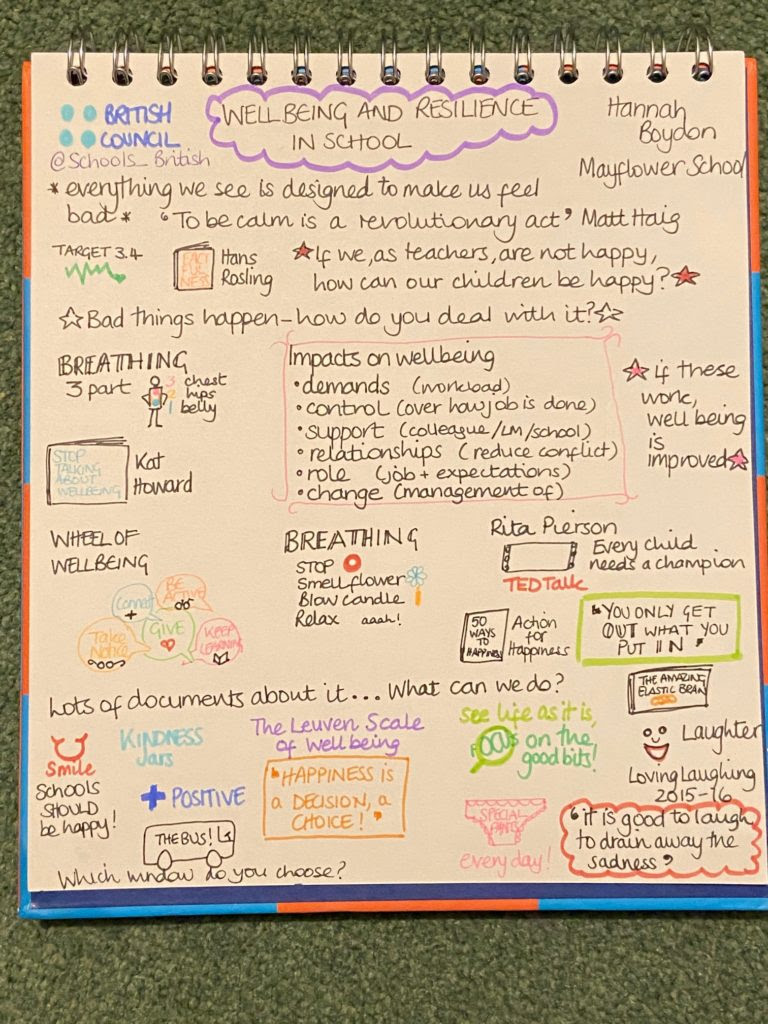 BRITISH
COUNCIL
@Schools_British
WELLBEING AND RESILIENCE
IN SCHOOL
Hannah
Boydon
Mayflower School
* everything we see is designed to make us feel
bad * 'To be calm is a revolutionary act' Matt Haig
TARGET 3.4
FACT
FUL
NESS
Hans
Rosling
If we, as teachers, are not happy,
how can our children be happy?
Bad things happen - how do you deal with it?
BREATHING
3 part
3 chest
2 hips
1 belly
Impacts on wellbeing
• demands (workload)
• control (over how job is done)
• support (colleague/LM/school)
• relationships (reduce conflict)
• role (job + expectations)
• change (management of)
if these
work,
well being
is
improved
STOP
TALKING
ABOUT
WELLBEING
Kat
Howard
WHEEL OF
WELLBEING
BE
ACTIVE
Connect
Take
Notice
GIVE
KEEP
LEARNING
BREATHING
STOP
Smell flower
Blow candle
Relax aaah!
Rita Pierson
Every child
needs a champion
TED Talk
50
WAYS
TO
HAPPINESS
Action
for
Happiness
"YOU ONLY GET
OUT WHAT YOU
PUT IN"
Lots of documents about it... What can we do?
THE AMAZING
ELASTIC BRAIN
Smile
Schools
SHOULD
be happy!
KINDNESS
Jars
+ POSITIVE
The Leuven Scale
of Wellbeing
"HAPPINESS IS
a DECISION, a
CHOICE!"
See life as it is,
FOCUS on the
good bits!
Laughter
Loving Laughing
2015-16
THE BUS!
Which window do you choose?
SPECIAL
PANTS
every day!
"it is good to laugh
to drain away the
sadness"